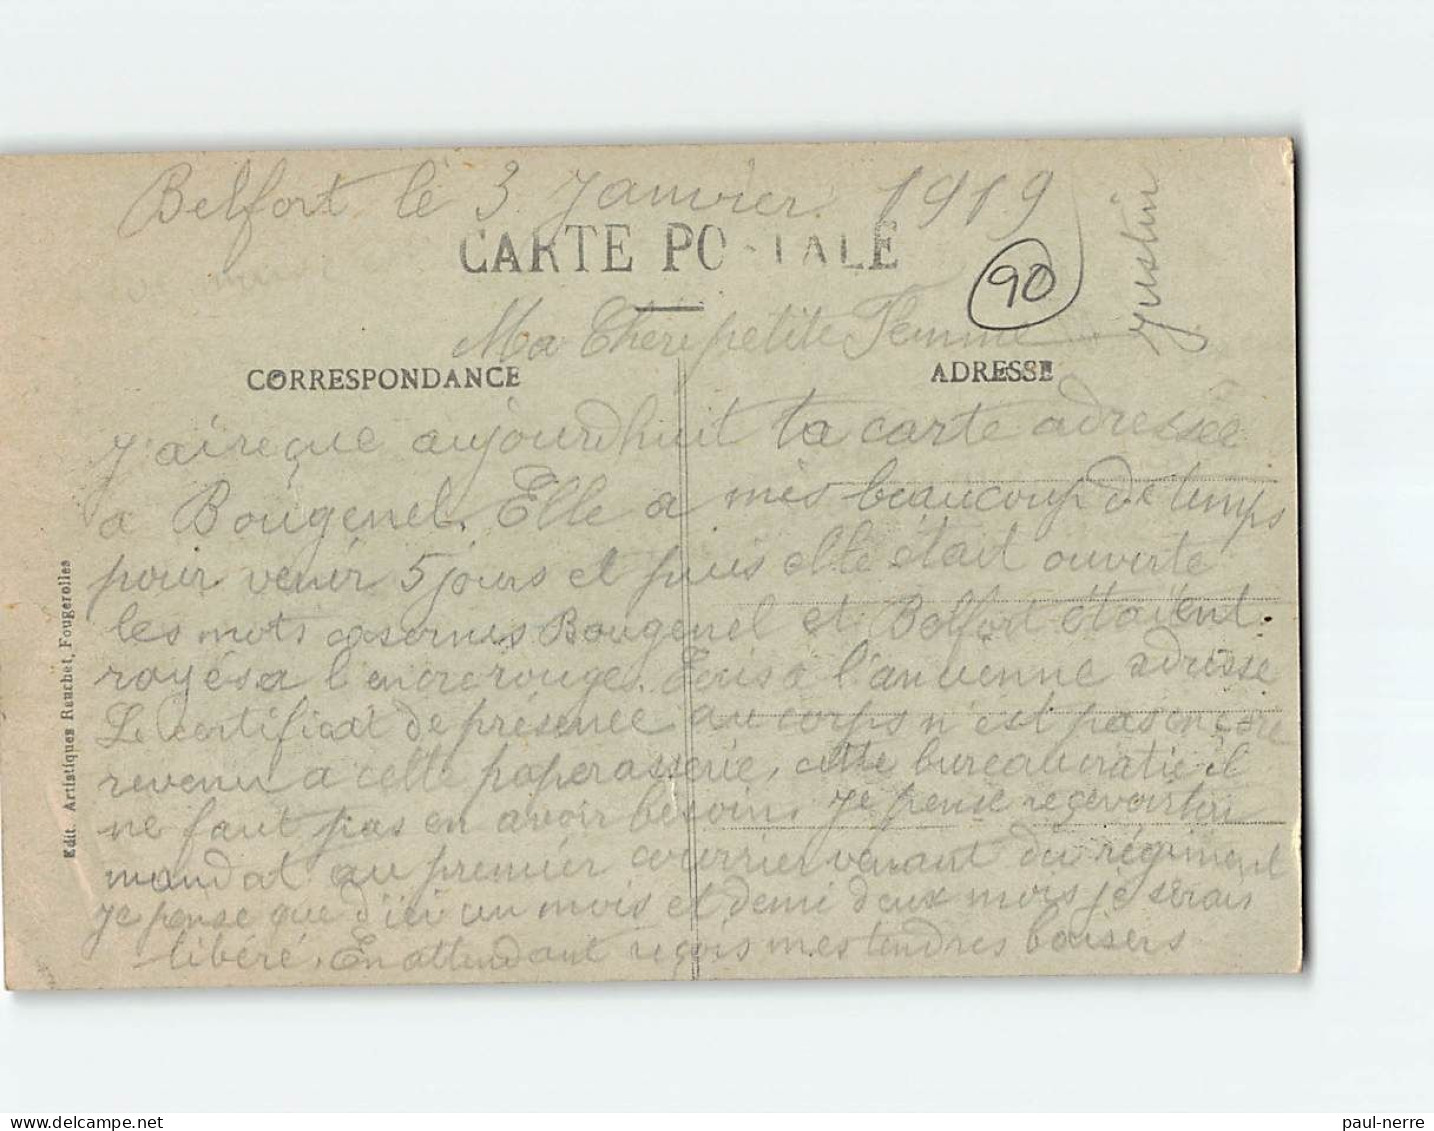 Belfort le 3 Janvier 1919
CARTE POSTALE
90
Justin
Ma Chere petite Femme
CORRESPONDANCE
ADRESSE
J'ai reçue aujourdhuit ta carte adressée
a Bougenel. Elle a mis beaucoup de temps
pour venir 5 jours et puis elle était ouverte
les mots casernes Bougenel et Belfort étaient
rayés a l'encre rouge. Ecris a l'ancienne adresse
Le certificat de présence au corps n'est pas encore
revenu a cette paperasserie, cette bureaucratie il
ne faut pas en avoir besoin. Je pense reçevoir ton
mandat au premier courrier venant du régiment
Je pense que d'ici un mois et demi deux mois je serais
libéré. En attendant reçois mes tendres baisers
Edit. Artistiques Reuchet, Fougerolles
paul-nerre